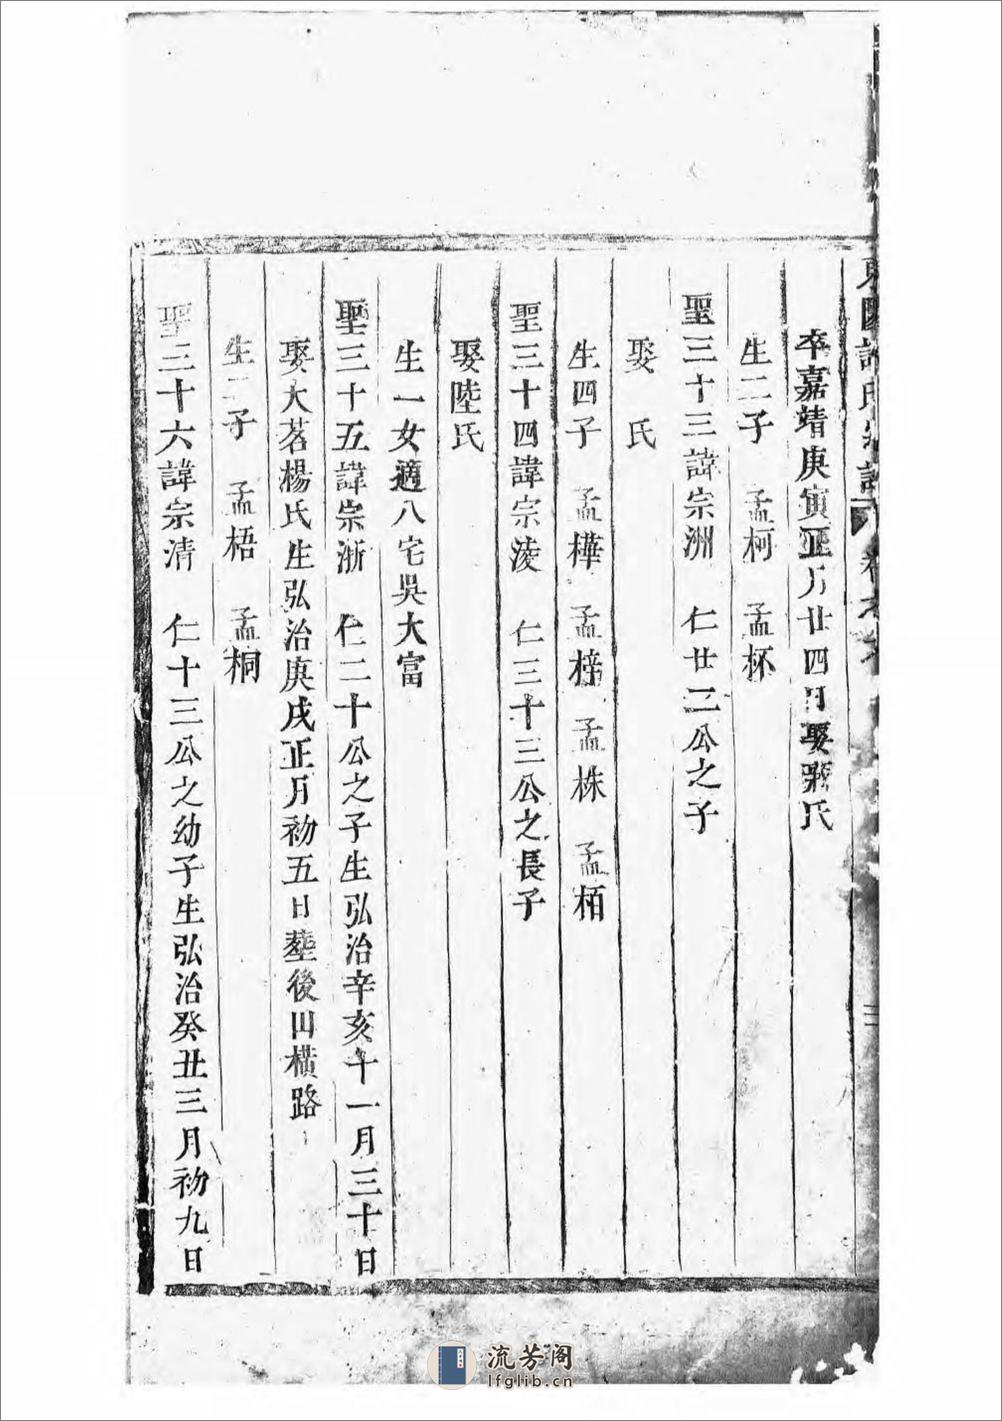 卒嘉靖庚寅正月廿四日娶蔡氏
生二子 孟柯 孟杯
聖三十三諱宗洲 仁廿二公之子
娶 氏
生四子 孟樺 孟梓 孟株 孟栢
聖三十四諱宗淩 仁三十三公之長子
娶陸氏
生一女適八宅吳大富
聖三十五諱宗浙 仁二十公之子生弘治辛亥十一月三十日
娶大茗楊氏生弘治庚戌正月初五日塟後田橫路
生二子 孟梧 孟桐
聖三十六諱宗清 仁十三公之幼子生弘治癸丑三月初九日
流芳阁
lfglib.cn